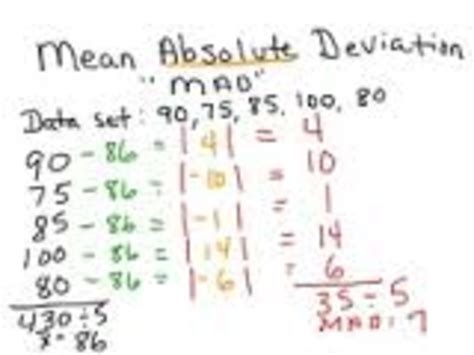 Mean Absolute Deviation
"MAD"
Data set: 90, 75, 85, 100, 80
90 - 86 = |4| = 4
75 - 86 = |-10| = 10
85 - 86 = |-1| = 1
100 - 86 = |14| = 14
80 - 86 = |-6| = 6
430 ÷ 5
x = 86
35 ÷ 5
MAD: 7